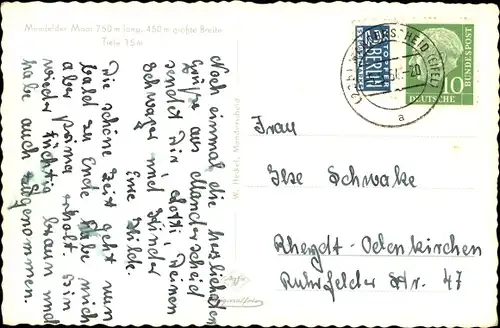 Meerfelder Maar 750 m lang, 450 m größte Breite
Tiefe 15 m
Noch einmal die herzlichsten
Grüße aus Manderscheid
sendet Dir, Lotti, Deinen
Schwager und Kinder
Eure Hilde.
Die schöne Zeit geht nun
bald zu Ende. Habe mich
aber prima erholt. Bin
wieder tüchtig braun und
habe auch zugenommen.
W. Heckel, Manderscheid
NOTOPFER
2 BERLIN
STEUERMARKE
MANDERSCHEID (EIFEL)
a
10
DEUTSCHE
BUNDESPOST
Frau
Ilse Schwake
Rheydt-Odenkirchen
Ruhrfelder Str. 47